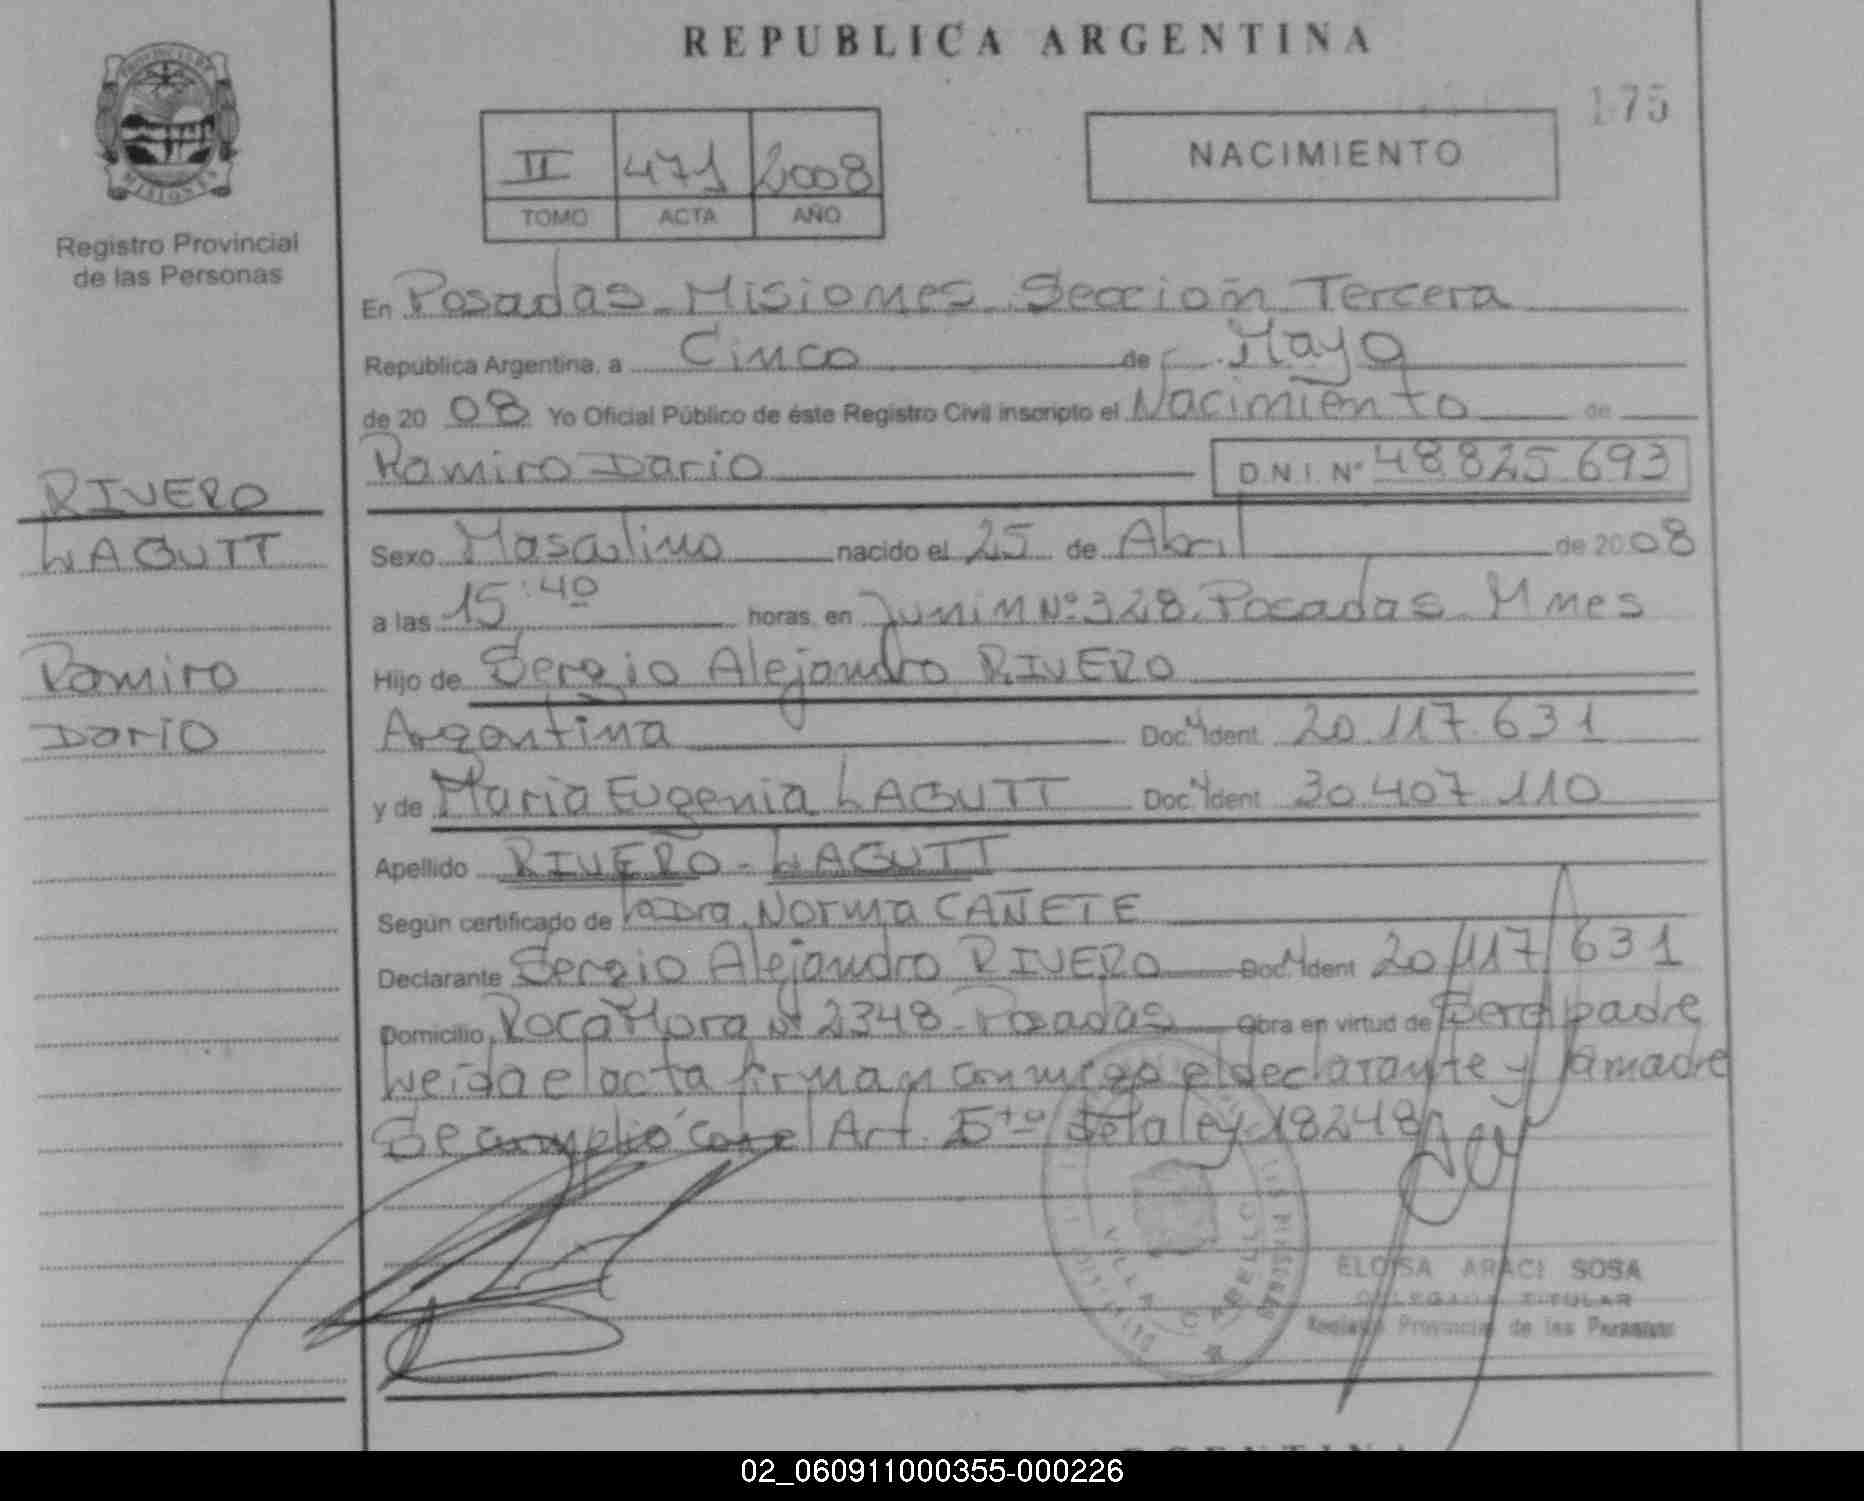 REPUBLICA ARGENTINA
175
PROVINCIA DE MISIONES
Registro Provincial
de las Personas
II 471 2008
TOMO ACTA AÑO
NACIMIENTO
En Posadas Misiones Sección Tercera
Republica Argentina, a Cinco de Mayo
de 20 08 Yo Oficial Público de éste Registro Civil inscripto el Nacimiento de
Ramiro Dario D.N.I. Nº 48.825.693
RIVERO
LAGUTT
Ramiro
Dario
Sexo Masculino nacido el 25 de Abril de 2008
a las 15:40 horas en Junin Nº 328. Posadas Mnes
Hijo de Sergio Alejandro RIVERO
Argentina Doc. Ident 20.117.631
y de Maria Eugenia LAGUTT Doc. Ident 30.407.110
Apellido RIVERO - LAGUTT
Según certificado de la Dra. Norma CAÑETE
Declarante Sergio Alejandro RIVERO Doc. Ident 20/117/631
Domicilio Roca Mora Nº 2348 Posadas Obra en virtud de Ser el padre
Leida el acta firman conmigo el declarante y la madre
Se cumplió con el Art. 5to de la ley 18248
VILLA CABELLO
ELOISA ARACI SOSA
DELEGADA TITULAR
Registro Provincial de las Personas
ARGENTINA
02_060911000355-000226